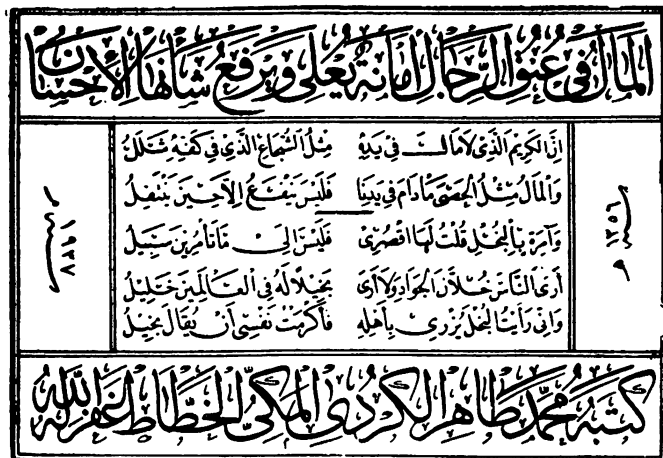 المال في عنق الرجال أمانة يعلى ويرفع شأنها الإحسان
إِنَّ الْكَرِيمَ الَّذِي لَا مَالَ فِي يَدِهِ مِثْلُ الشُّجَاعِ الَّذِي فِي كَفِّهِ شَلَلُ
وَالْمَالُ مِثْلُ الْحَصَى مَا دَامَ فِي يَدِنَا فَلَيْسَ يَنْفَعُ إِلَّا حِينَ يَنْتَقِلُ
وَآمِرَةٍ بِالْبُخْلِ قُلْتُ لَهَا اقْصُرِي فَلَيْسَ إِلَى مَا تَأْمُرِينَ سَبِيلُ
أَرَى النَّاسَ خُلَّانَ الْجَوَادِ وَلَا أَرَى بَخِيلًا لَهُ فِي الْعَالَمِينَ خَلِيلُ
وَإِنِّي رَأَيْتُ الْبُخْلَ يُزْرِي بِأَهْلِهِ فَأَكْرَمْتُ نَفْسِي أَنْ يُقَالَ بَخِيلُ
سنة ١٣٥٦ هـ
سنة ١٩٣٧ م
كتبه محمد طاهر الكردي المكي الخطاط غفر الله له